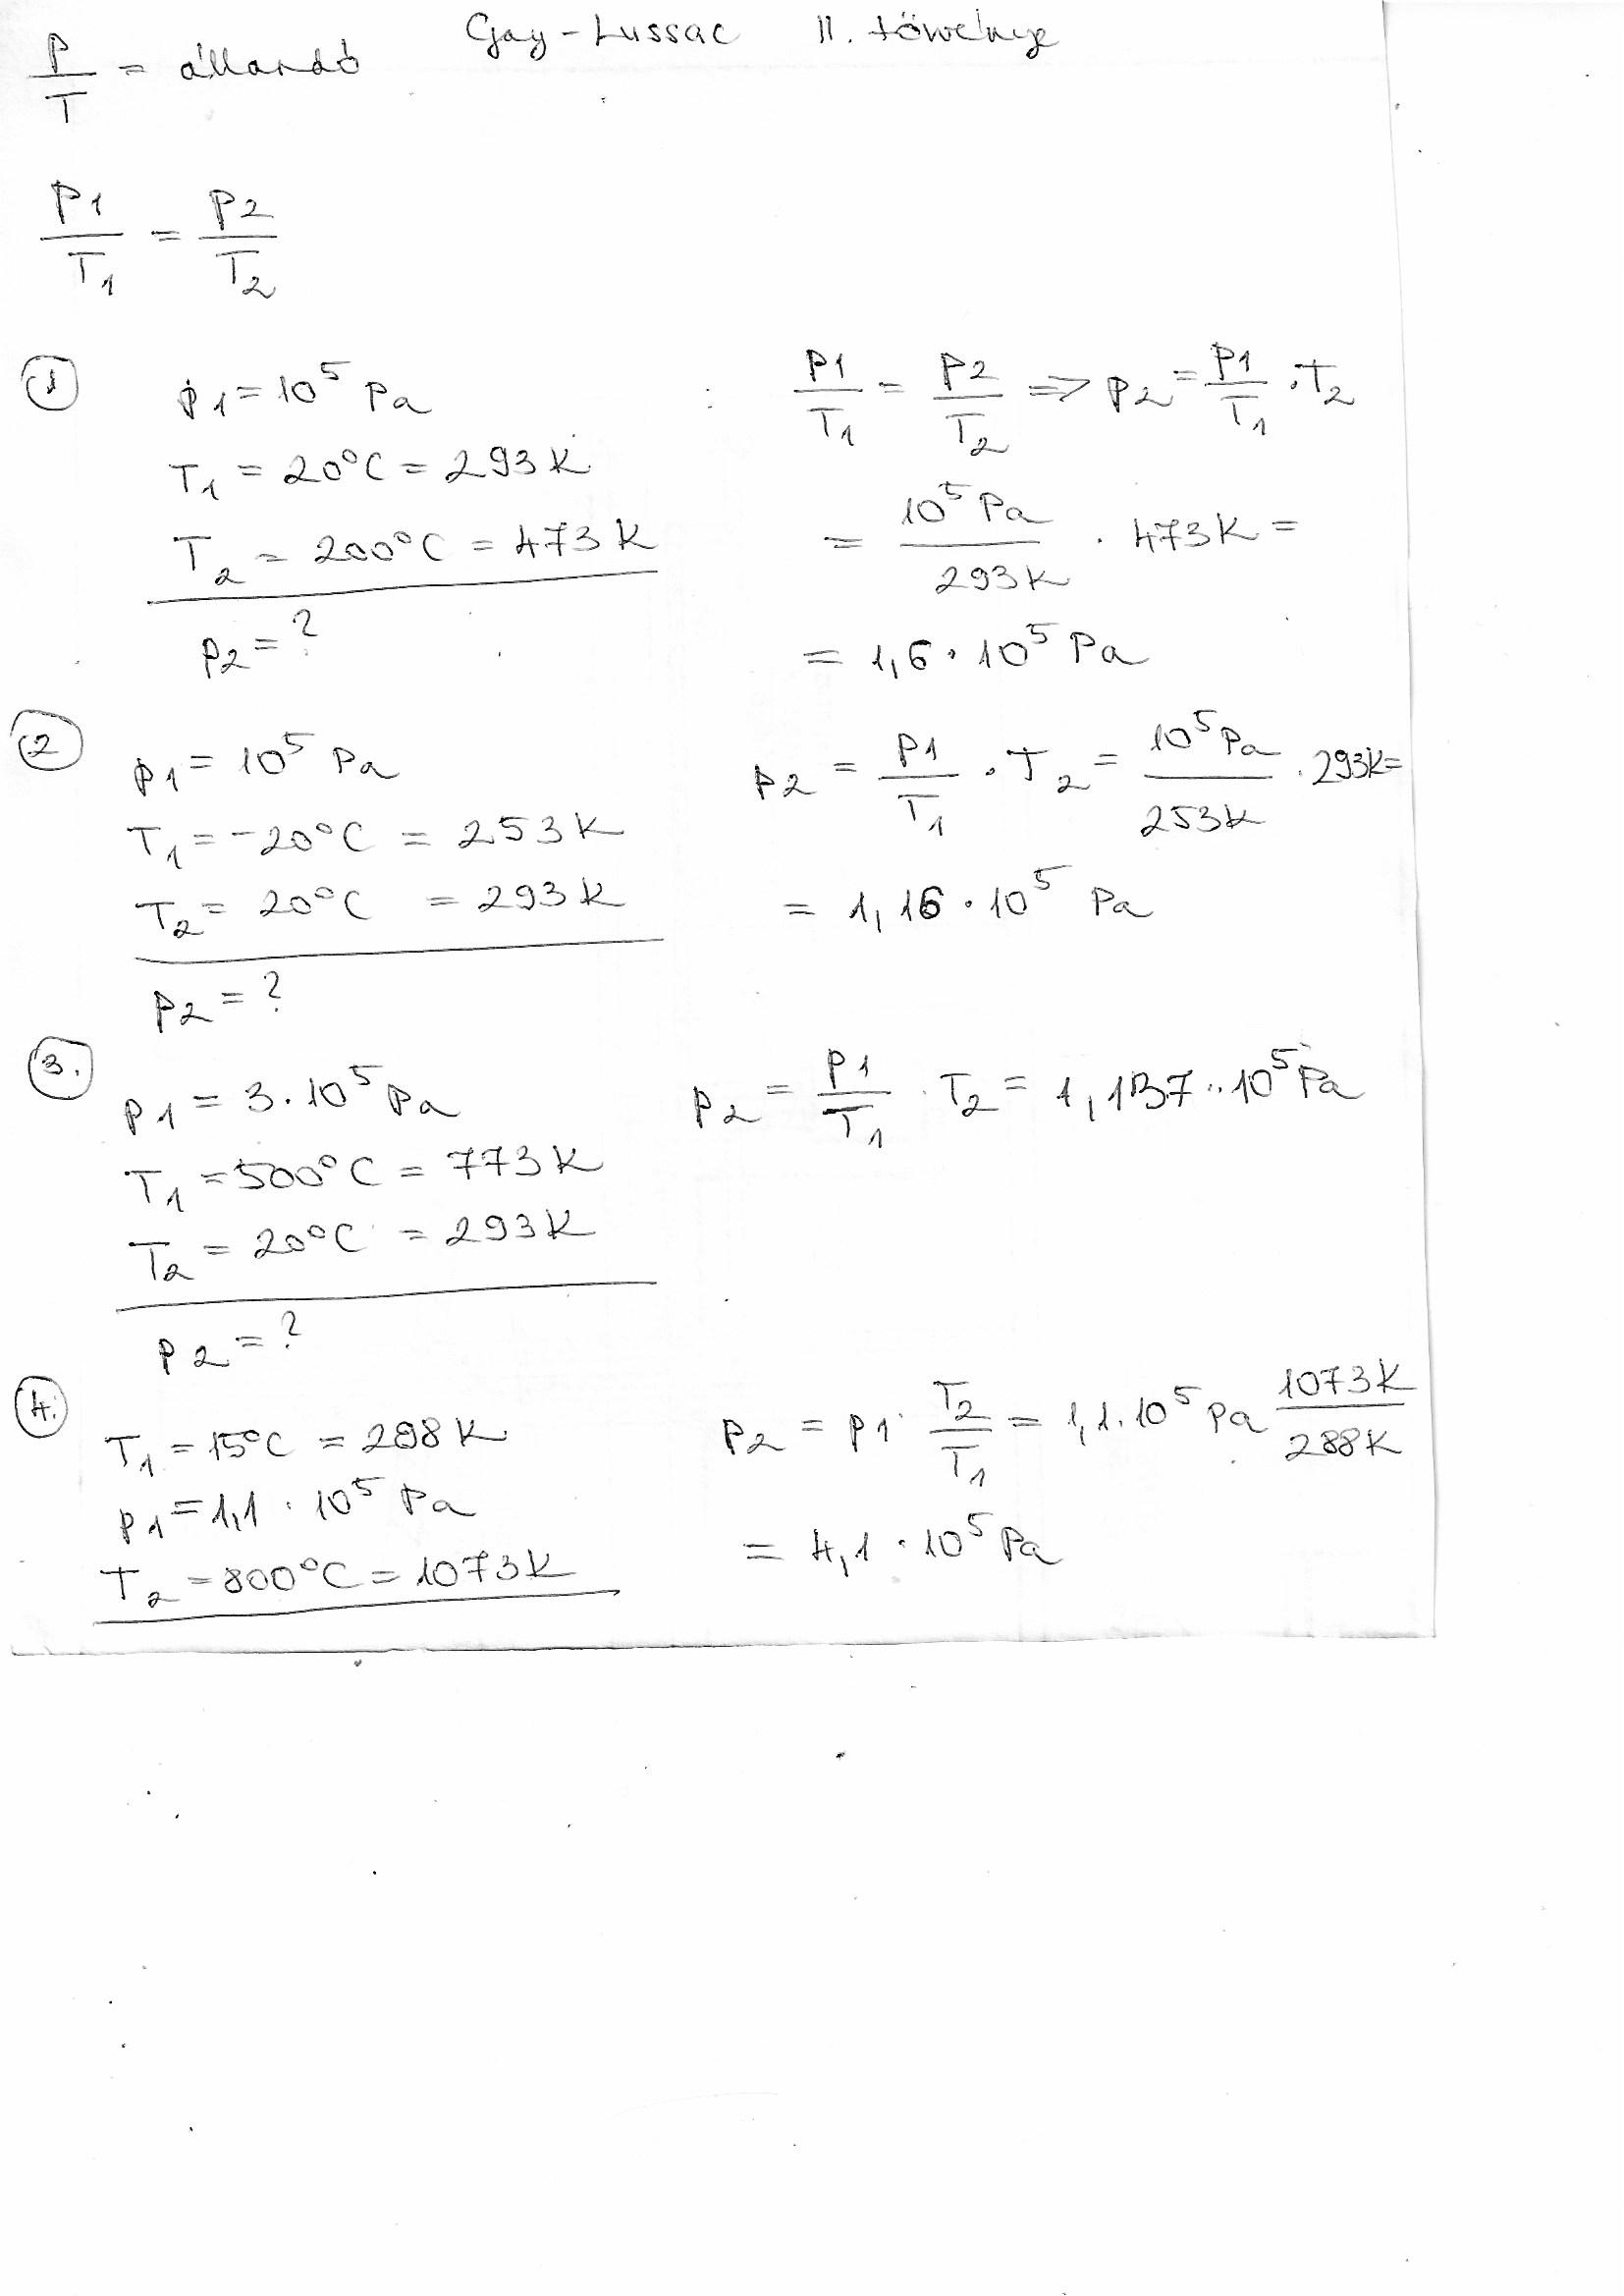 Gay-Lussac II. törvénye
P/T = állandó
P1/T1 = P2/T2
① p1 = 10⁵ Pa
T1 = 20°C = 293 K
T2 = 200°C = 473 K
p2 = ?
P1/T1 = P2/T2 => p2 = P1/T1 · T2
= 10⁵ Pa/293 K · 473 K =
= 1,6 · 10⁵ Pa
② p1 = 10⁵ Pa
T1 = -20°C = 253 K
T2 = 20°C = 293 K
p2 = ?
p2 = P1/T1 · T2 = 10⁵ Pa/253 K · 293 K =
= 1,16 · 10⁵ Pa
③. p1 = 3 · 10⁵ Pa
T1 = 500°C = 773 K
T2 = 20°C = 293 K
p2 = ?
p2 = P1/T1 · T2 = 1,137 · 10⁵ Pa
④. T1 = 15°C = 288 K
p1 = 1,1 · 10⁵ Pa
T2 = 800°C = 1073 K
p2 = p1 · T2/T1 = 1,1 · 10⁵ Pa 1073 K/288 K
= 4,1 · 10⁵ Pa